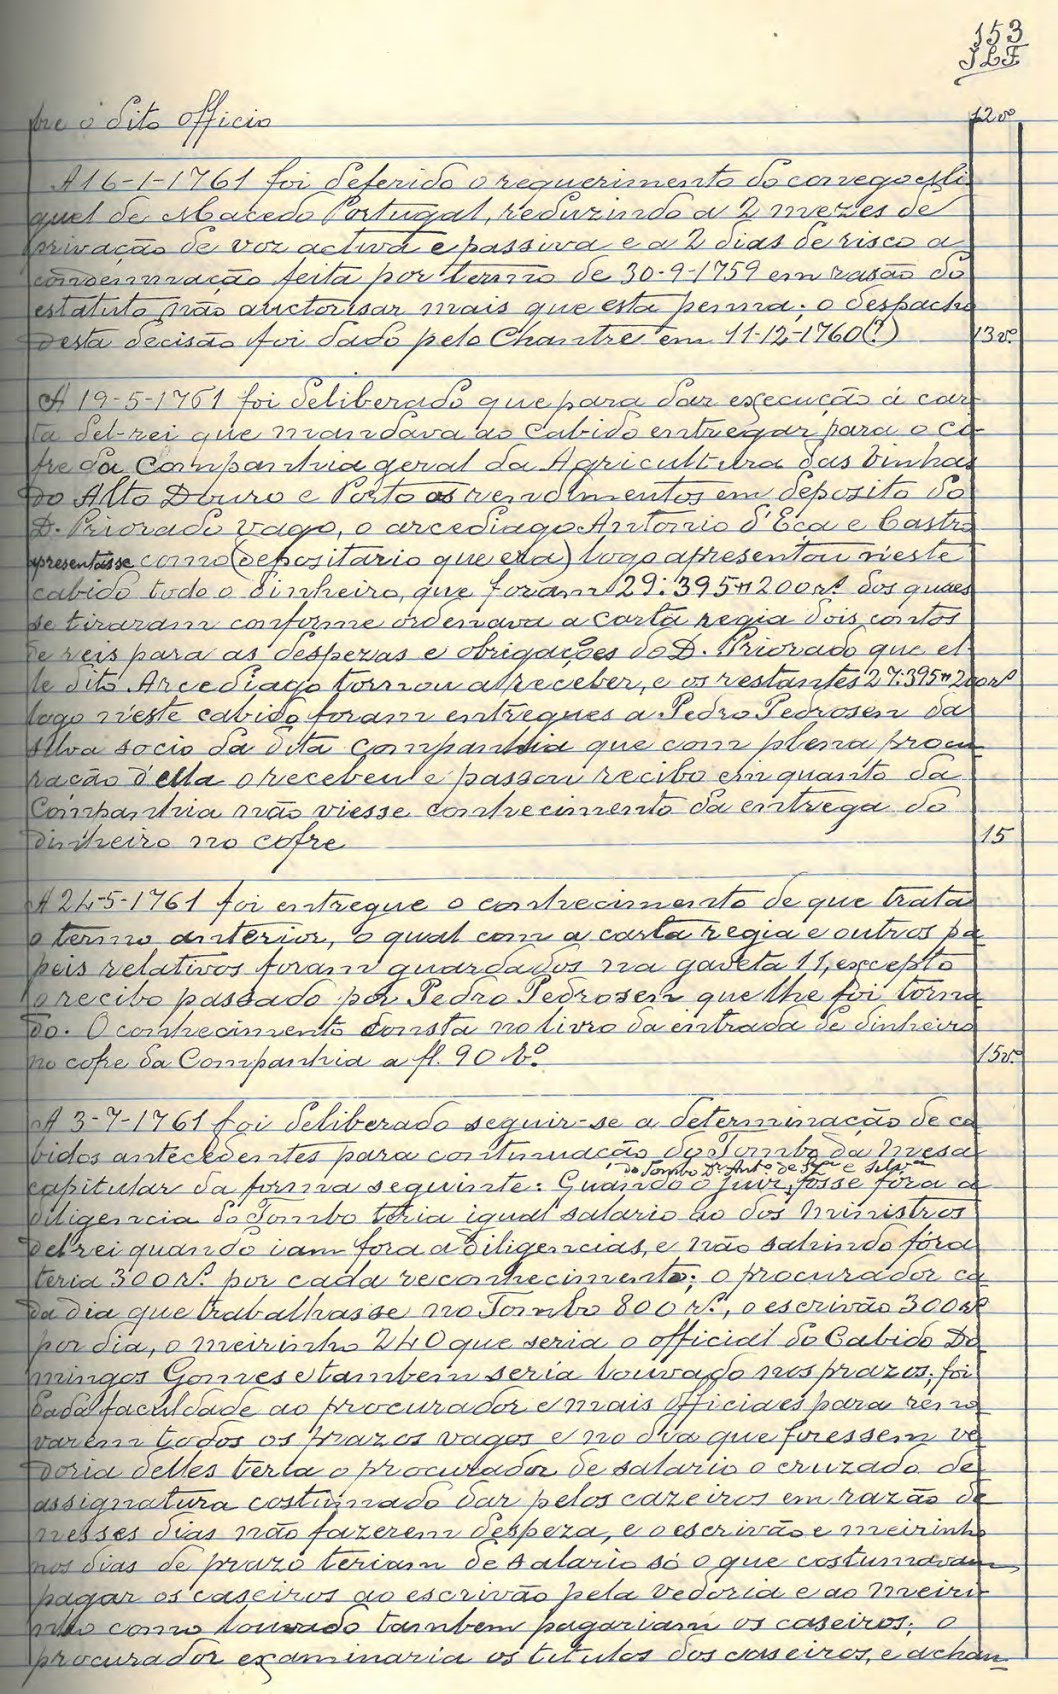 153
JLF
bre o dito officio
12vº
A 16-1-1761 foi deferido o requerimento do conego Mi
guel de Macedo Portugal, reduzindo a 2 mezes de
privação de voz activa e passiva e a 2 dias de risco a
condemnação feita por termo de 30-9-1759 em rasão do
estatuto não auctorisar mais que esta penna; o despacho
desta decisão foi dado pelo Chantre em 11-12-1760(?)
13vº
A 19-5-1761 foi deliberado que para dar execução á car
ta del-rei que mandava ao Cabido entregar para o co-
fre da Companhia geral da Agricultura das Vinhas
do Alto Douro e Porto os rendimentos em deposito do
D. Priorado vago, o arcediago Antonio d'Eça e Castro
apresentásse como (depositario que era) logo apresentou n'este
cabido todo o dinheiro, que foram 29:395$200 rs. dos quaes
se tiraram conforme ordenava a carta regia dois contos
de reis para as despezas e obrigações do D. Priorado que el-
le dito Arcediago tornou a receber, e os restantes 27:395$200 rs
logo n'este cabido foram entregues a Pedro Pedrosem da
Silva socio da dita Companhia que com plena procu
ração d'ella o recebeu e passou recibo emquanto da
Companhia não viesse conhecimento da entrega do
dinheiro no cofre
15
A 24-5-1761 foi entregue o conhecimento de que trata
o termo anterior, o qual com a carta regia e outros pa
peis relativos foram guardados na gaveta 11, excepto
o recibo passado por Pedro Pedrosem que lhe foi torna
do. O conhecimento consta no livro da entrada de dinheiro
no cofre da Companhia a fl. 90 vº.
15vº
A 3-7-1761 foi deliberado seguir-se a determinação de ca
bidos antecedentes para continuação do Tombo da Mesa
do Tombo Dr Antº de Sza e
capitular da forma seguinte: Quando o juiz, fosse fóra a
diligencia do Tombo teria igual salario ao dos Ministros
del-rei quando iam fora a diligencias, e não sahindo fóra
teria 300 rs. por cada reconhecimento; o procurador ca
da dia que trabalhasse no Tombo 800 rs., o escrivão 300 rs
por dia, o meirinho 240 que seria o official do Cabido Do
mingos Gomes e tambem seria louvado nos prazos; foi
dada faculdade ao procurador e mais officiaes para reno
varem todos os prazos vagos e no dia que fizessem ve
doria delles teria o procurador de salario o cruzado de
assignatura costumado dar pelos cazeiros em razão de
nesses dias não fazerem despeza, e o escrivão e meirinho
nos dias de prazo teriam de salario só o que costumavam
pagar os caseiros ao escrivão pela vedoria e ao meiri-
nho como louvado tambem pagariam os caseiros; o
procurador examinaria os titulos dos caseiros, e achan-